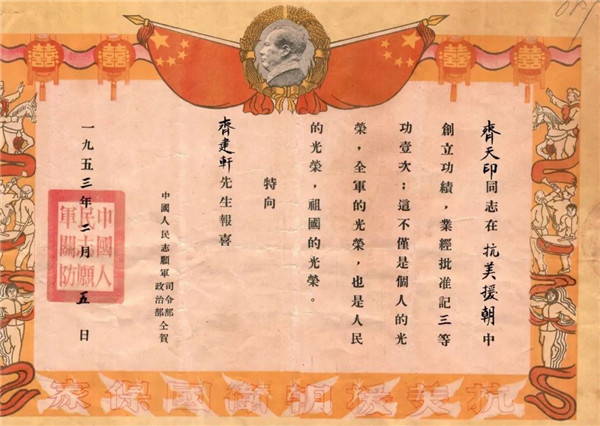 囍 囍 囍 囍
齊天印同志在抗美援朝中
創立功績,業經批准記三等
功壹次;這不僅是個人的光
榮,全軍的光榮,也是人民
的光榮,祖國的光榮。
特向
齊建軒先生報喜
中國人民志願軍司令部政治部仝賀
一九五三年二月五日
中國人
民志願
軍關防
抗美援朝衛國保家